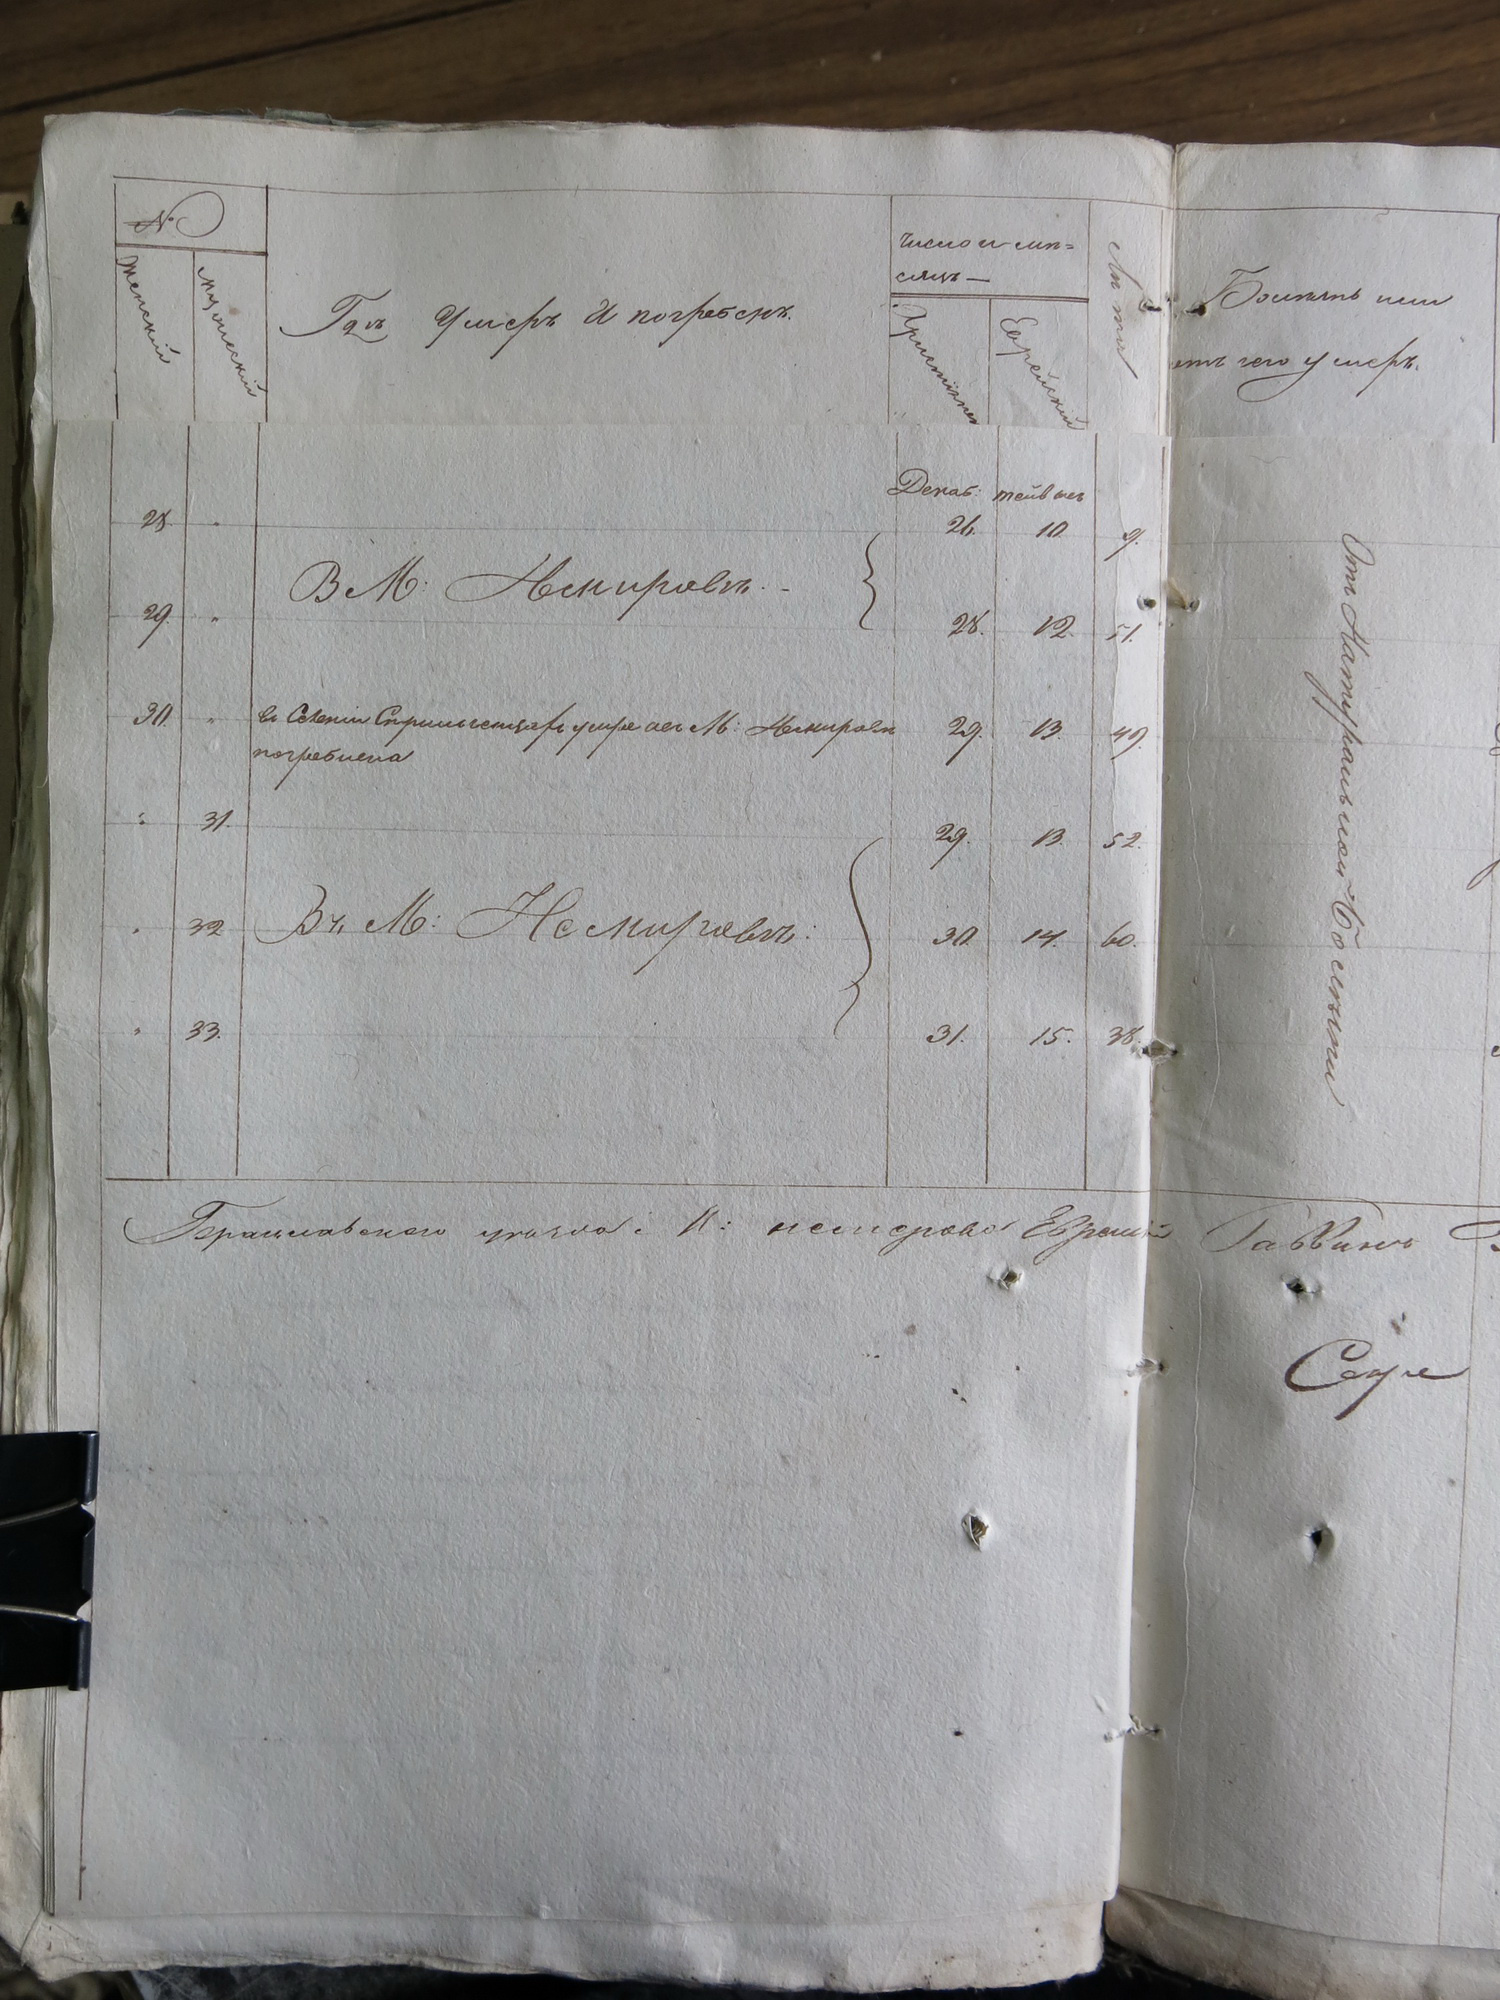 №
Женскій
Мужескій
Гдѣ умеръ и погребенъ.
Число и мѣ=
сяцъ—
Христіянск
Еврейскій
Лѣта
Болезнь или
отъ чего умеръ.
Декаб: тейвесъ
28. 26. 10. 9.
В М: Немировѣ. -
29. 28. 12. 51.
30. въ Селеніи умре а въ М: Немировѣ 29. 13. 49.
погребена
31. 29. 13. 52.
32 Въ М: Немировѣ: 30. 14. 60.
33. 31. 15. 38.
От Натуральной Болезни
Брацлавского уезда: К: немирова Еврейскій Раввинъ